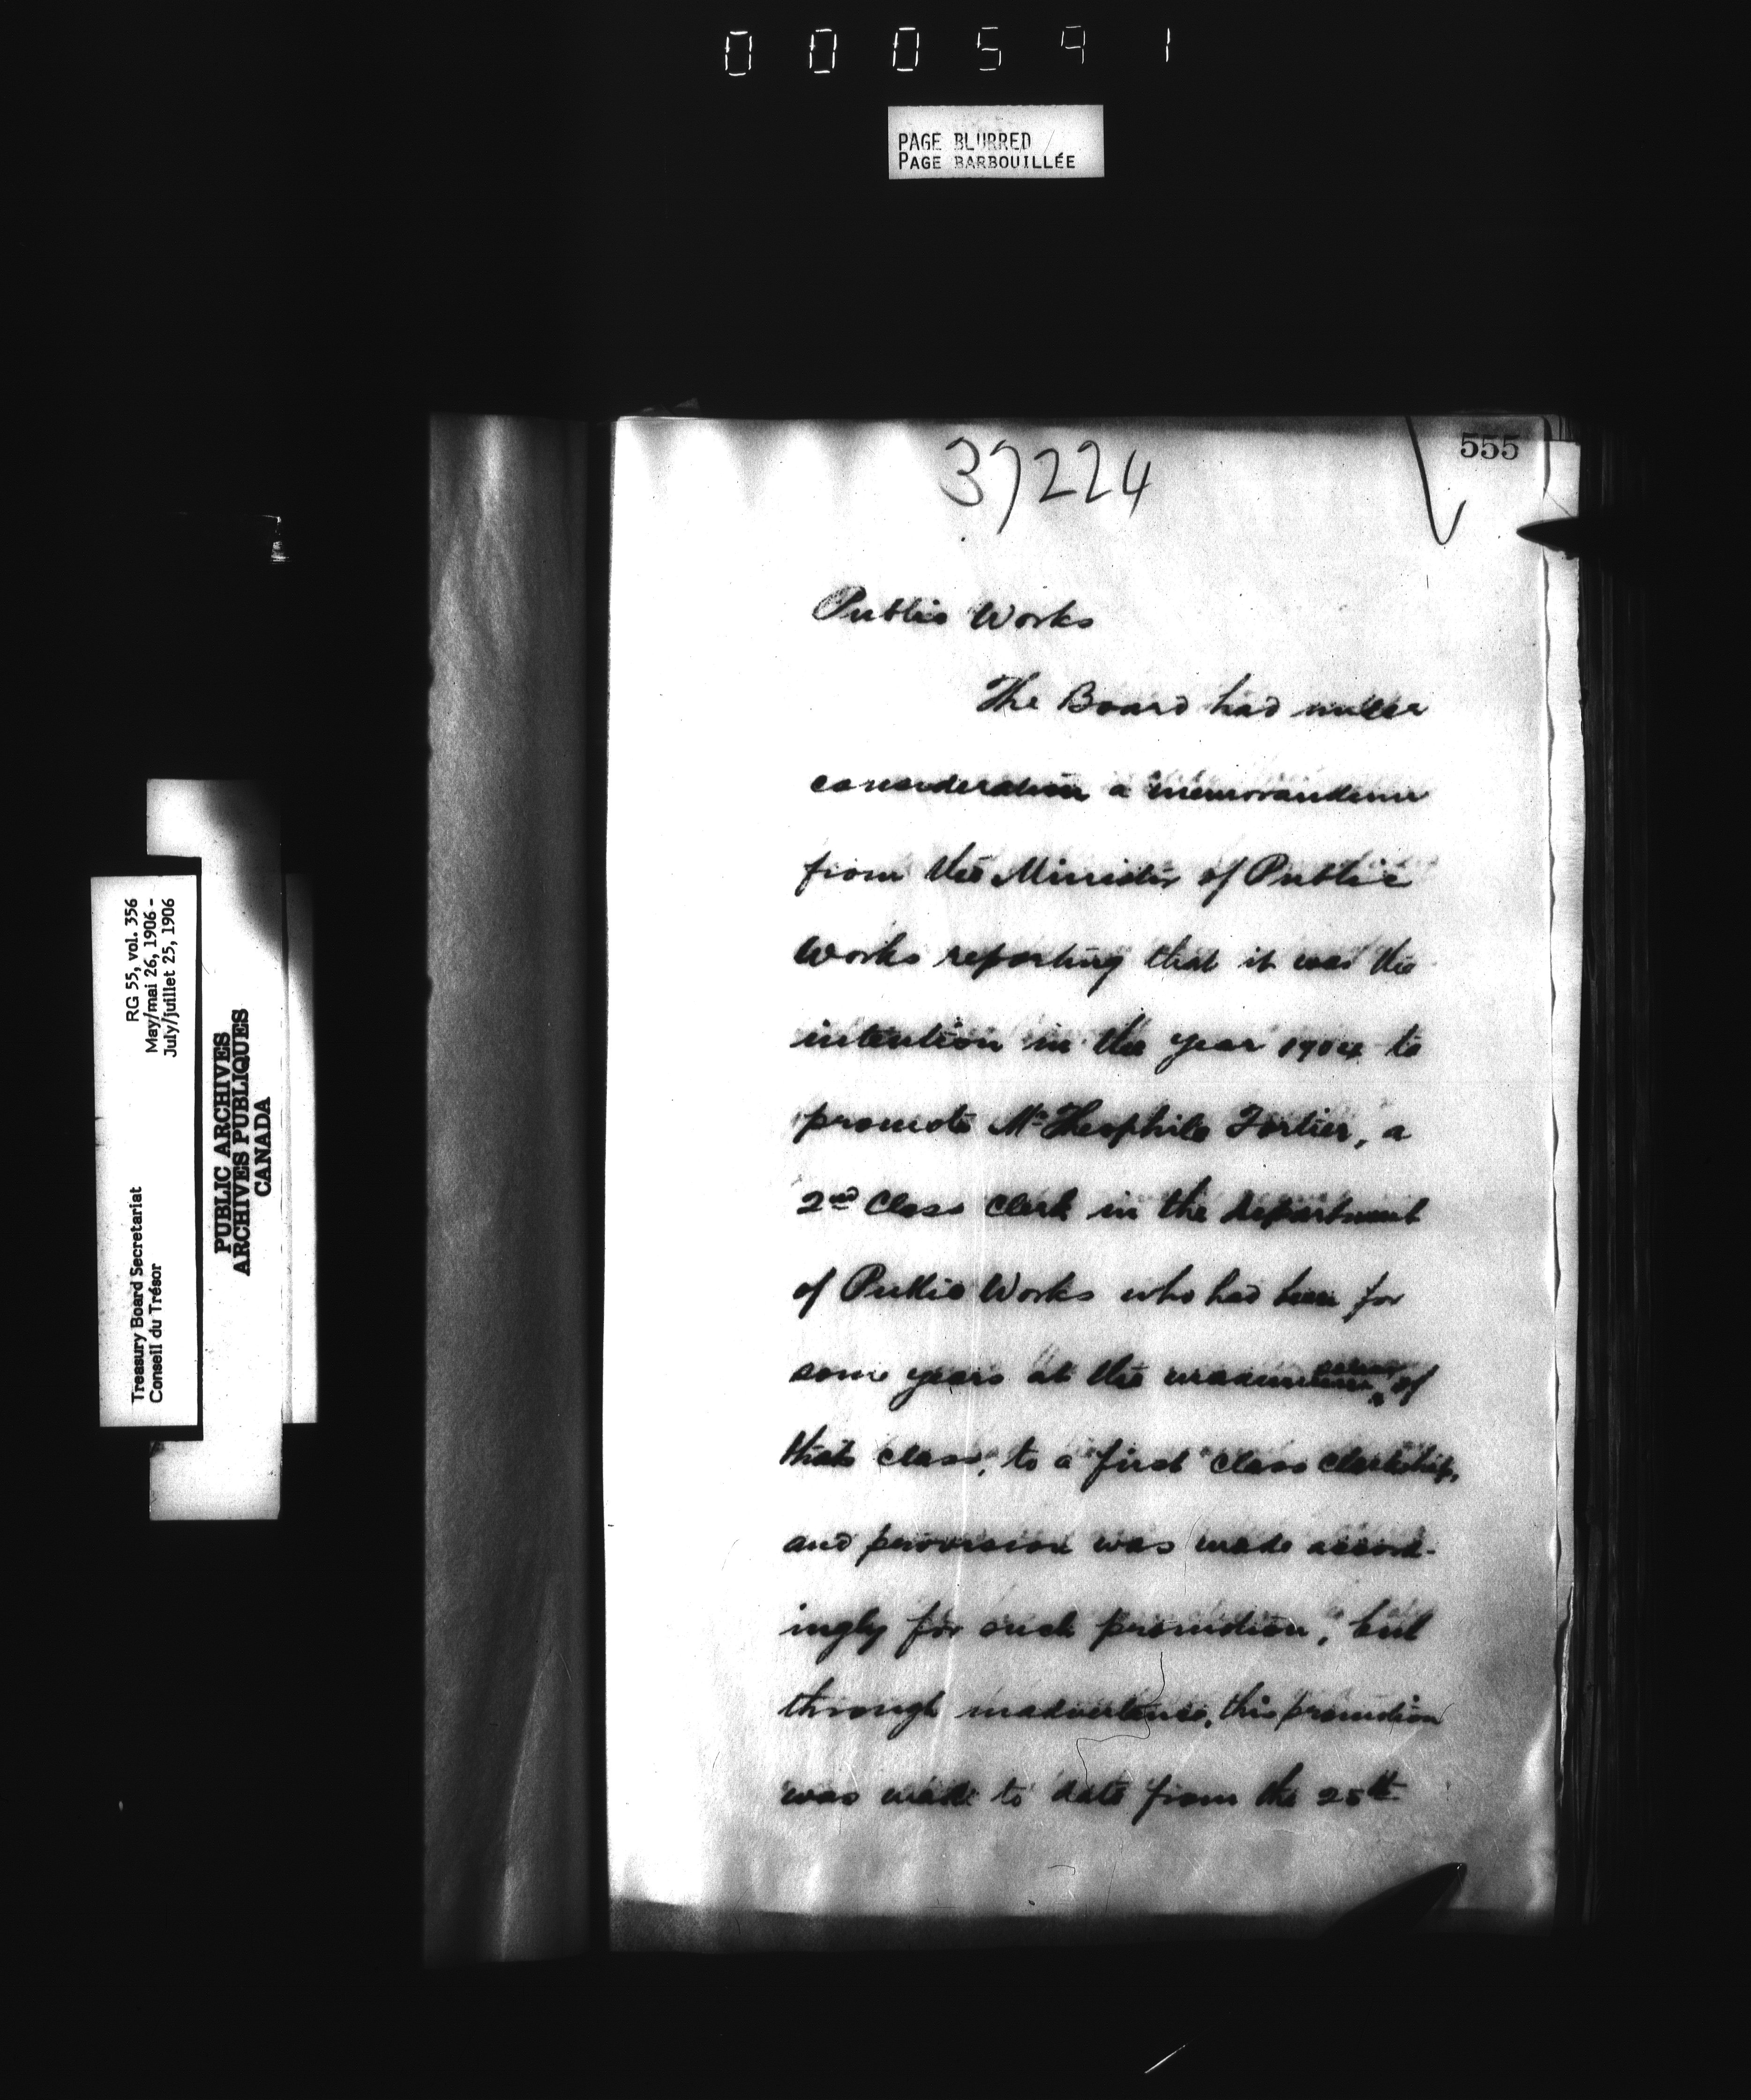 000591
PAGE BLURRED
PAGE BARBOUILLÉE
555
37224
Public Works
The Board had under
consideration a memorandum
from the Minister of Public
Works reporting that it was the
intention in the year 1904 to
promote Mr Theophile Fortier, a
2nd Class Clerk in the Department
of Public Works who had been for
some years at the maximum of
that class, to a first class clerkship,
and provision was made accord-
ingly for such promotion, but
through inadvertence, this promotion
was made to date from the 25th
RG 55, vol. 356
May/mai 26, 1906 -
July/juillet 25, 1906
Treasury Board Secretariat
Conseil du Trésor
PUBLIC ARCHIVES
ARCHIVES PUBLIQUES
CANADA